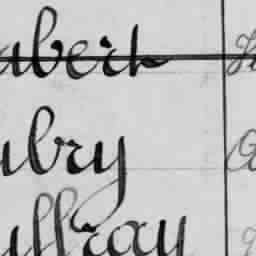 ubert
ubry
uffray